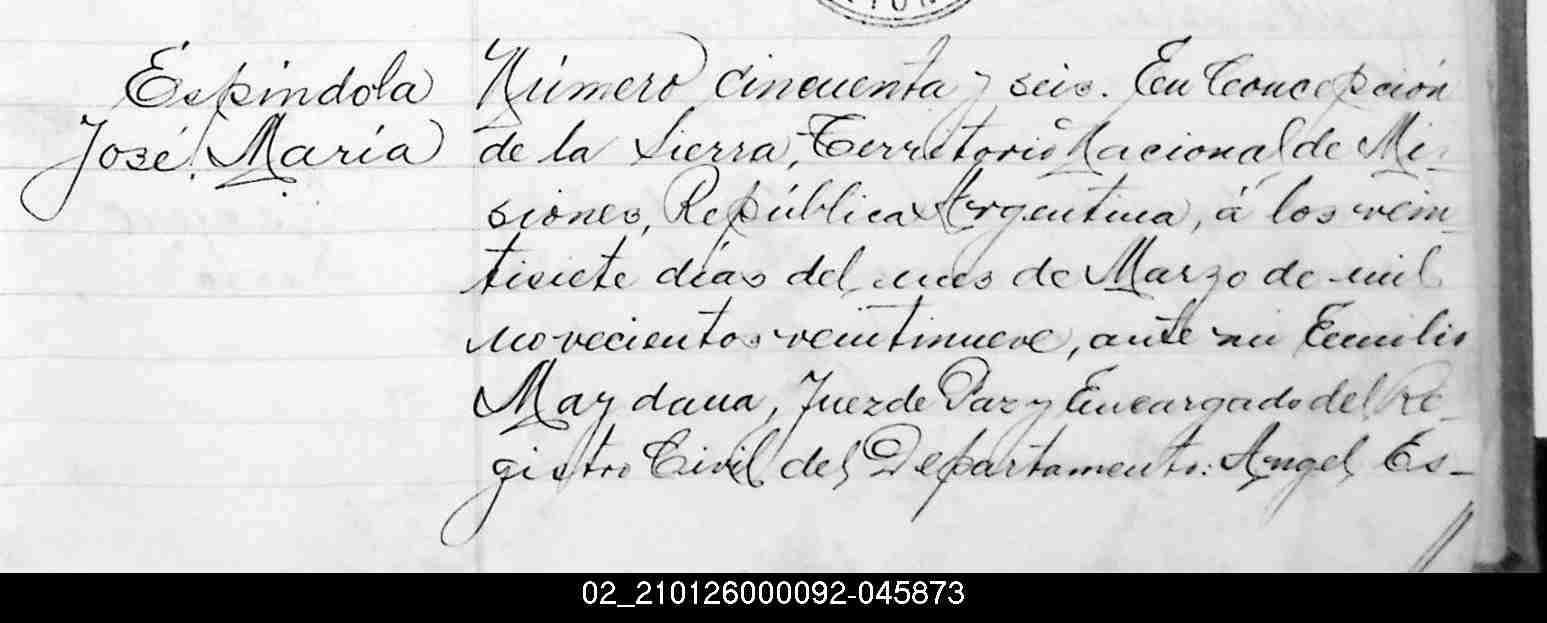 Espíndola
José María
Número cincuenta y seis. En Concepción
de la Sierra, Territorio Nacional de Mi-
siones, República Argentina, á los vein-
tisiete días del mes de Marzo de mil
novecientos veintinueve, ante mi Emilio
Maydana, Juez de Paz y Encargado del Re-
gistro Civil del Departamento: Angel Es-
02_210126000092-045873